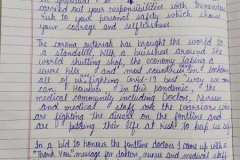 carried out your responsibilities with
risk to your personal safety which shows
your courage and selflessness.
The corona outbreak has brought the world to
a standstill. With a
world shutting shop, the economy taking a
severe hit, and most countries in
all of us fighting Covid-19 best way we
can, However, in this pandemic, the
medical community including Doctors, Nurses
and medical staff and the
are fighting the disease on the frontline and
are putting their life at risk to keep us
In a bid to honour the frontline doctors I came up with a
"Thank You" message for doctors, nurses and medical staff